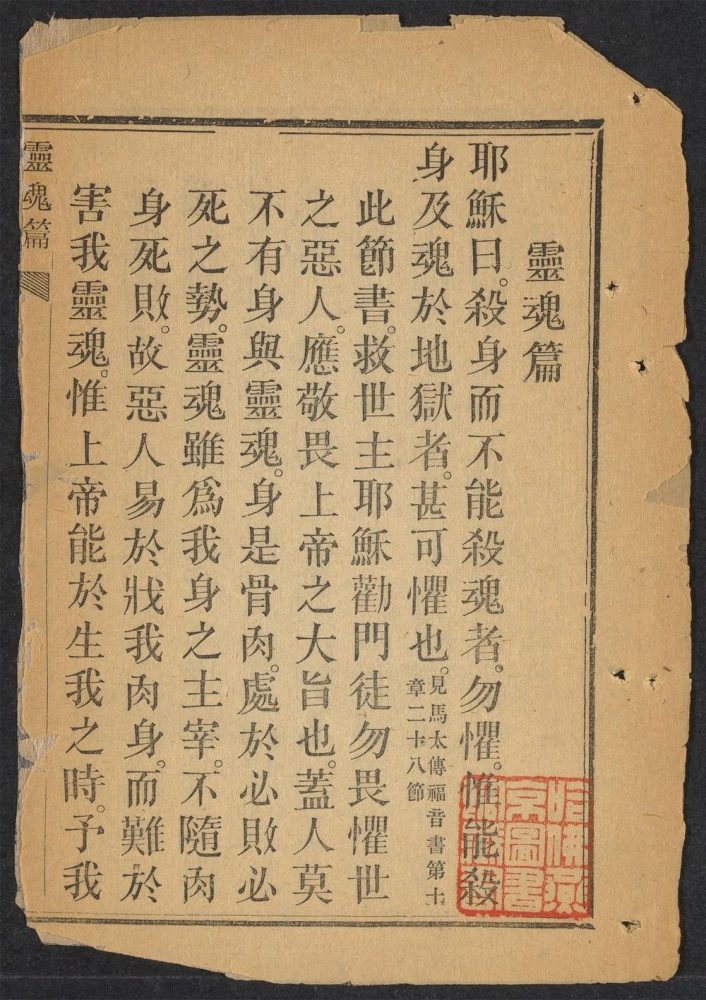 靈魂篇
耶穌曰。殺身而不能殺魂者。勿懼。惟能殺
身及魂於地獄者。甚可懼也。見馬太傳福音書第十
章二十八節
此節書。救世主耶穌勸門徒勿畏懼世
之惡人。應敬畏上帝之大旨也。蓋人莫
不有身與靈魂。身是骨肉。處於必敗必
死之勢。靈魂雖爲我身之主宰。不隨肉
身死敗。故惡人易於戕我肉身。而難於
害我靈魂。惟上帝能於生我之時。予我
靈魂篇